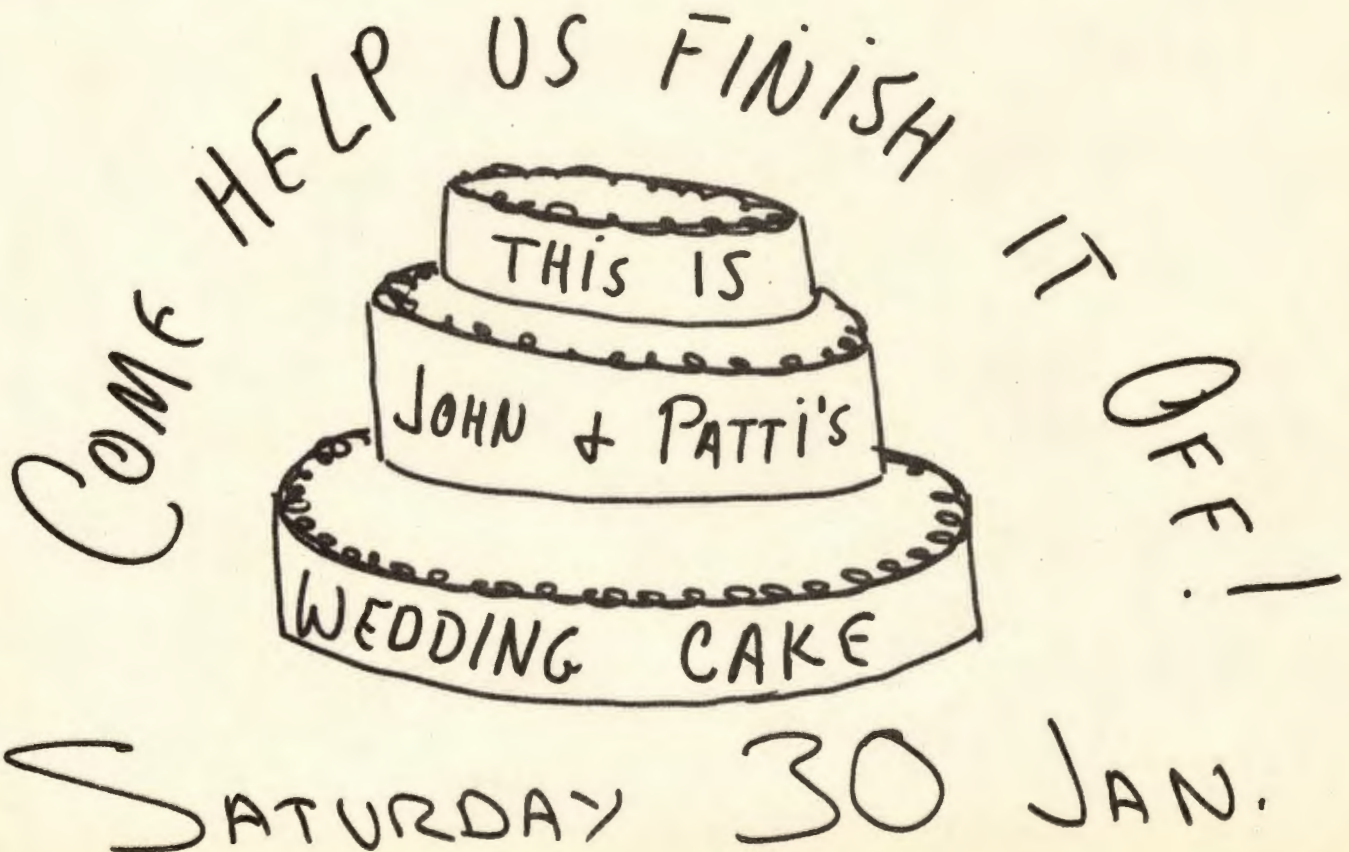 COME HELP US FINISH IT OFF!
THIS IS
JOHN & PATTI'S
WEDDING CAKE
SATURDAY 30 JAN.